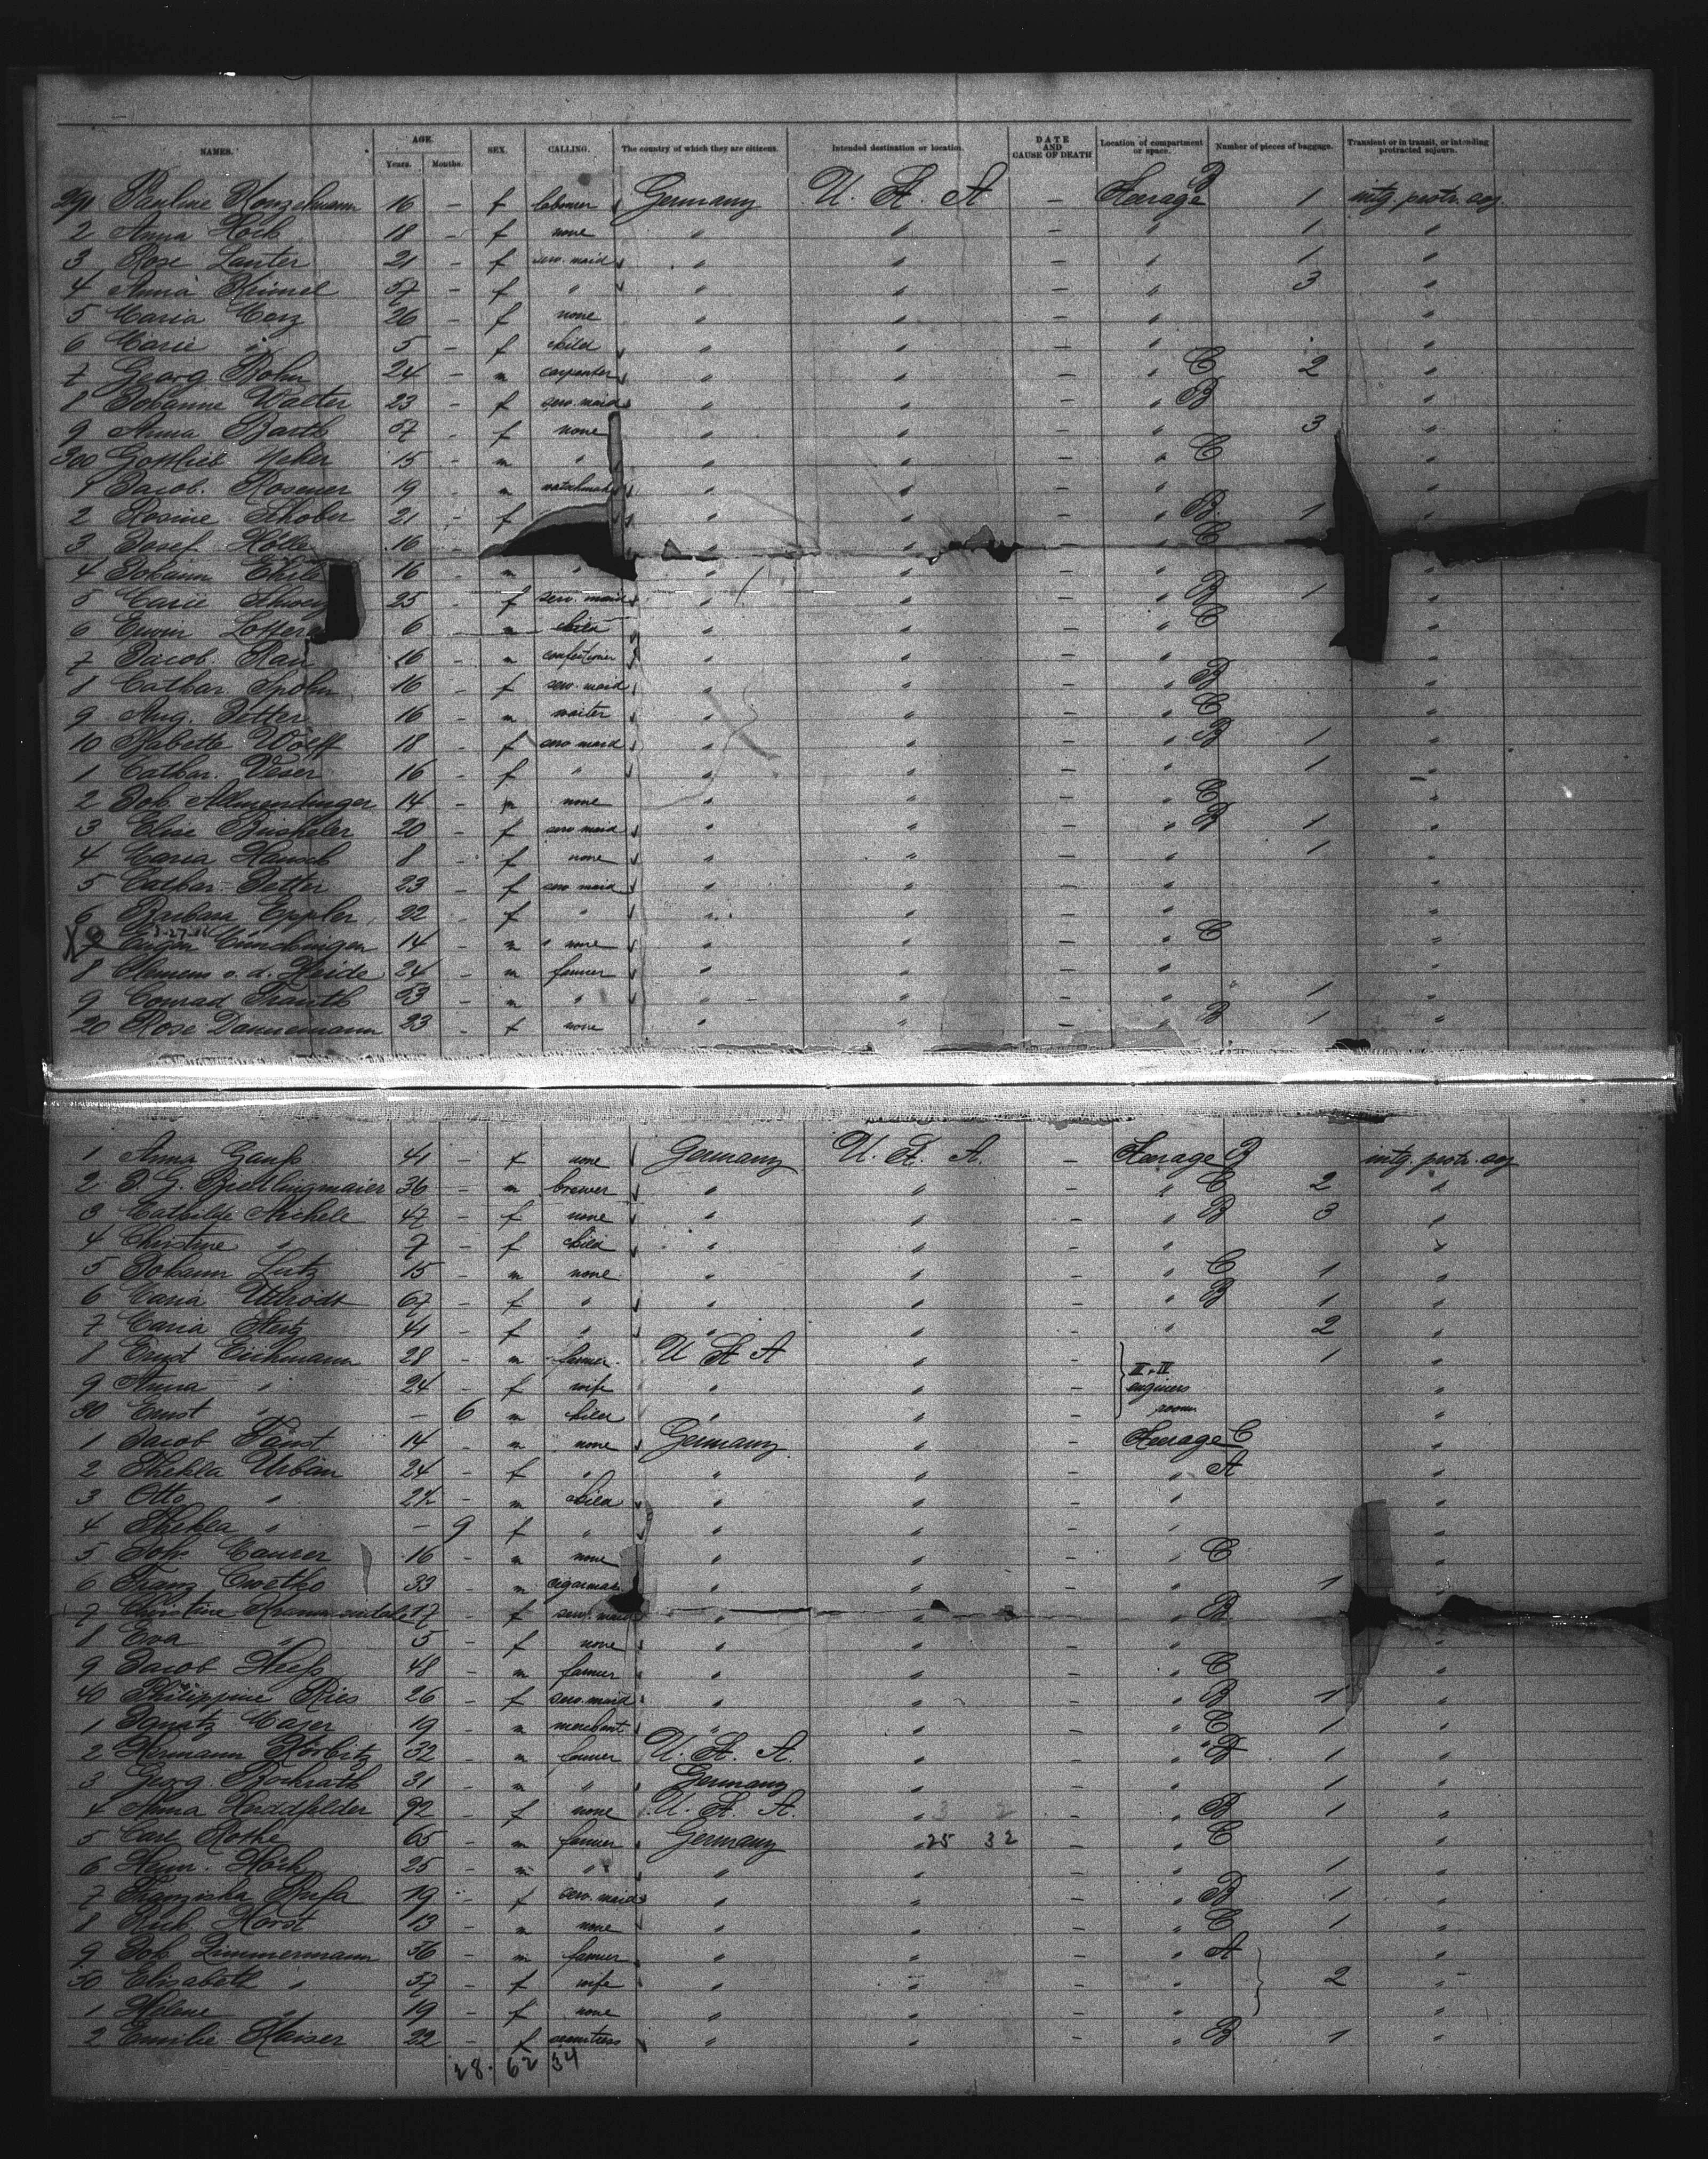 NAMES. AGE. Years. Months. SEX. CALLING. The country of which they are citizens. Intended destination or location. DATE AND CAUSE OF DEATH Location of compartment or space. Number of pieces of baggage. Transient or in transit, or intending protracted sojourn.
291 Pauline Konzelmann 16 – f labourer Germany U. S. A – Steerage B 1 intg. protr. soj.
2 Anna Hock 18 – f none " " – " 1 "
3 Rose Lauter 21 – f serv. maid " " – " 1 "
4 Anna 57 – f " " " – " 3 "
5 Maria Merz 26 – f none " " – " "
6 Marie " 5 – f child " " – " "
7 Georg Bohn 24 – m carpenter " " – " C 2 "
8 Johanne Walter 23 – f serv. maid " " – " B "
9 Anna Barth 57 – f none " " – " 3 "
300 Gottlieb 15 – m " " " – " C "
1 Jacob. Rosener 19 – m " " – " "
2 Rosine Schober 21 – f " " – " B 1 "
3 Josef Hölle 16 – " " – " C
4 Johann 16 – m " " " – " "
5 Marie 25 – f serv. maid " " – " B 1 "
6 Erwin 6 – m child " " – " C "
7 Jacob. Rau 16 – m confectioner " " – " "
8 Cathar. Spohn 16 – f serv. maid " " – " B "
9 Aug. 16 – m waiter " " – " C "
10 Babette Wolff 18 – f serv. maid " " – " B 1 "
1 Cathar. Veser 16 – f " " " – " 1 "
2 Joh. Allmendinger 14 – m none " " – " C "
3 Elise 20 – f serv. maid " " – " B 1 "
4 Maria Hausch 8 – f none " " – " 1 "
5 Cathar. Vetter 23 – f serv. maid " " – " "
6 Barbara Eppler 22 – f " " " – " "
X 7 Eugen 14 – m none " " – " C "
8 Clemens v. d. Heide 24 – m farmer " " – " "
9 Conrad 53 – m " " " – " 1 "
20 Rose Dannemann 23 – f none " " – " B 1 "
1 Anna Ganss 41 – f none Germany U. S. A. – Steerage B intg. protr. soj.
2 J. G. Biedlingmaier 36 – m brewer " " – " C 2 "
3 Mathilde Aichele 47 – f none " " – " B 3 "
4 Christine " 7 – f child " " – " "
5 Johann Lutz 15 – m none " " – " C 1 "
6 Maria 67 – f " " " – " B 1 "
7 Maria 41 – f " " " – " 2 "
8 Ernst Eichmann 28 – m farmer U S A " – II + IV 1 "
9 Anna " 24 – f wife " " – engineers "
30 Ernst " – 6 m child " " – room "
1 Jacob Faust 14 – m none Germany " – Steerage C "
2 Thekla Urban 24 – f " " " – " A "
3 Otto " 2½ – m child " " – " "
4 Thekla " – 9 f " " " – " "
5 Joh. Maurer 16 – m none " " – " C "
6 Franz Cwetko 33 – m cigarmak " " – " 1 "
7 Christine 17 – f serv. maid " " – " B "
8 Eva " 5 – f none " " – " "
9 Jacob Hess 48 – m farmer " " – " C "
40 Philippine Ries 26 – f serv. maid " " – " B 1 "
1 Ignatz Majer 19 – m merchant " " – " C 1 "
2 Hermann Körbitz 32 – m farmer U. S. A. " – " D 1 "
3 Georg. 31 – m " Germany " – " 1 "
4 Anna 72 – f none U. S. A. " – " B 1 "
5 Carl Rothe 65 – m farmer Germany " 25 32 – " C "
6 Heinr. Höck 25 – m " " " – " 1 "
7 Franziska 19 – f serv. maid " " – " B 1 "
8 Rich. Horst 13 – m none " " – " C 1 "
9 Joh. Zimmermann 56 – m farmer " " – " A "
50 Elisabeth " 57 – f wife " " – " 2 "
1 Helene " 19 – f none " " – " "
2 Emilie Kaiser 22 – f seamstress " " – " B 1 "
28. 62 34